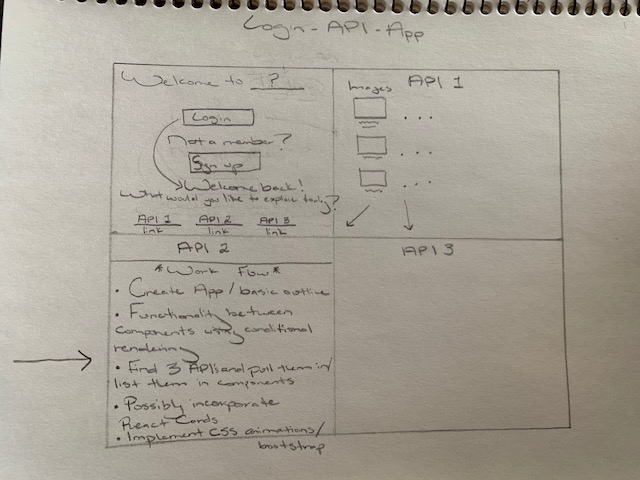 Login - API - App
Welcome to ?
Login
Not a member?
Sign up
Welcome back!
What would you like to explore today?
API 1 API 2 API 3
link link link
API 1
Images
...
...
...
API 2
*Work Flow*
• Create App / basic outline
• Functionality between
components using conditional
rendering
• Find 3 APIs and pull them in/
list them in components
• Possibly incorporate
React Cards
• Implement CSS animations/
bootstrap
API 3